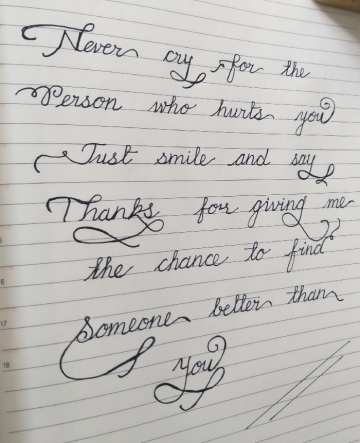 Never cry for the
Person who hurts you
Just smile and say
Thanks for giving me
the chance to find
someone better than
you
17
18